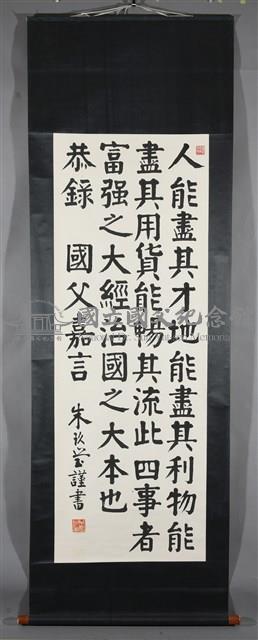 人能盡其才地能盡其利物能
盡其用貨能暢其流此四事者
富强之大經治國之大本也
恭錄　國父嘉言
朱玖瑩謹書
國立國父紀念